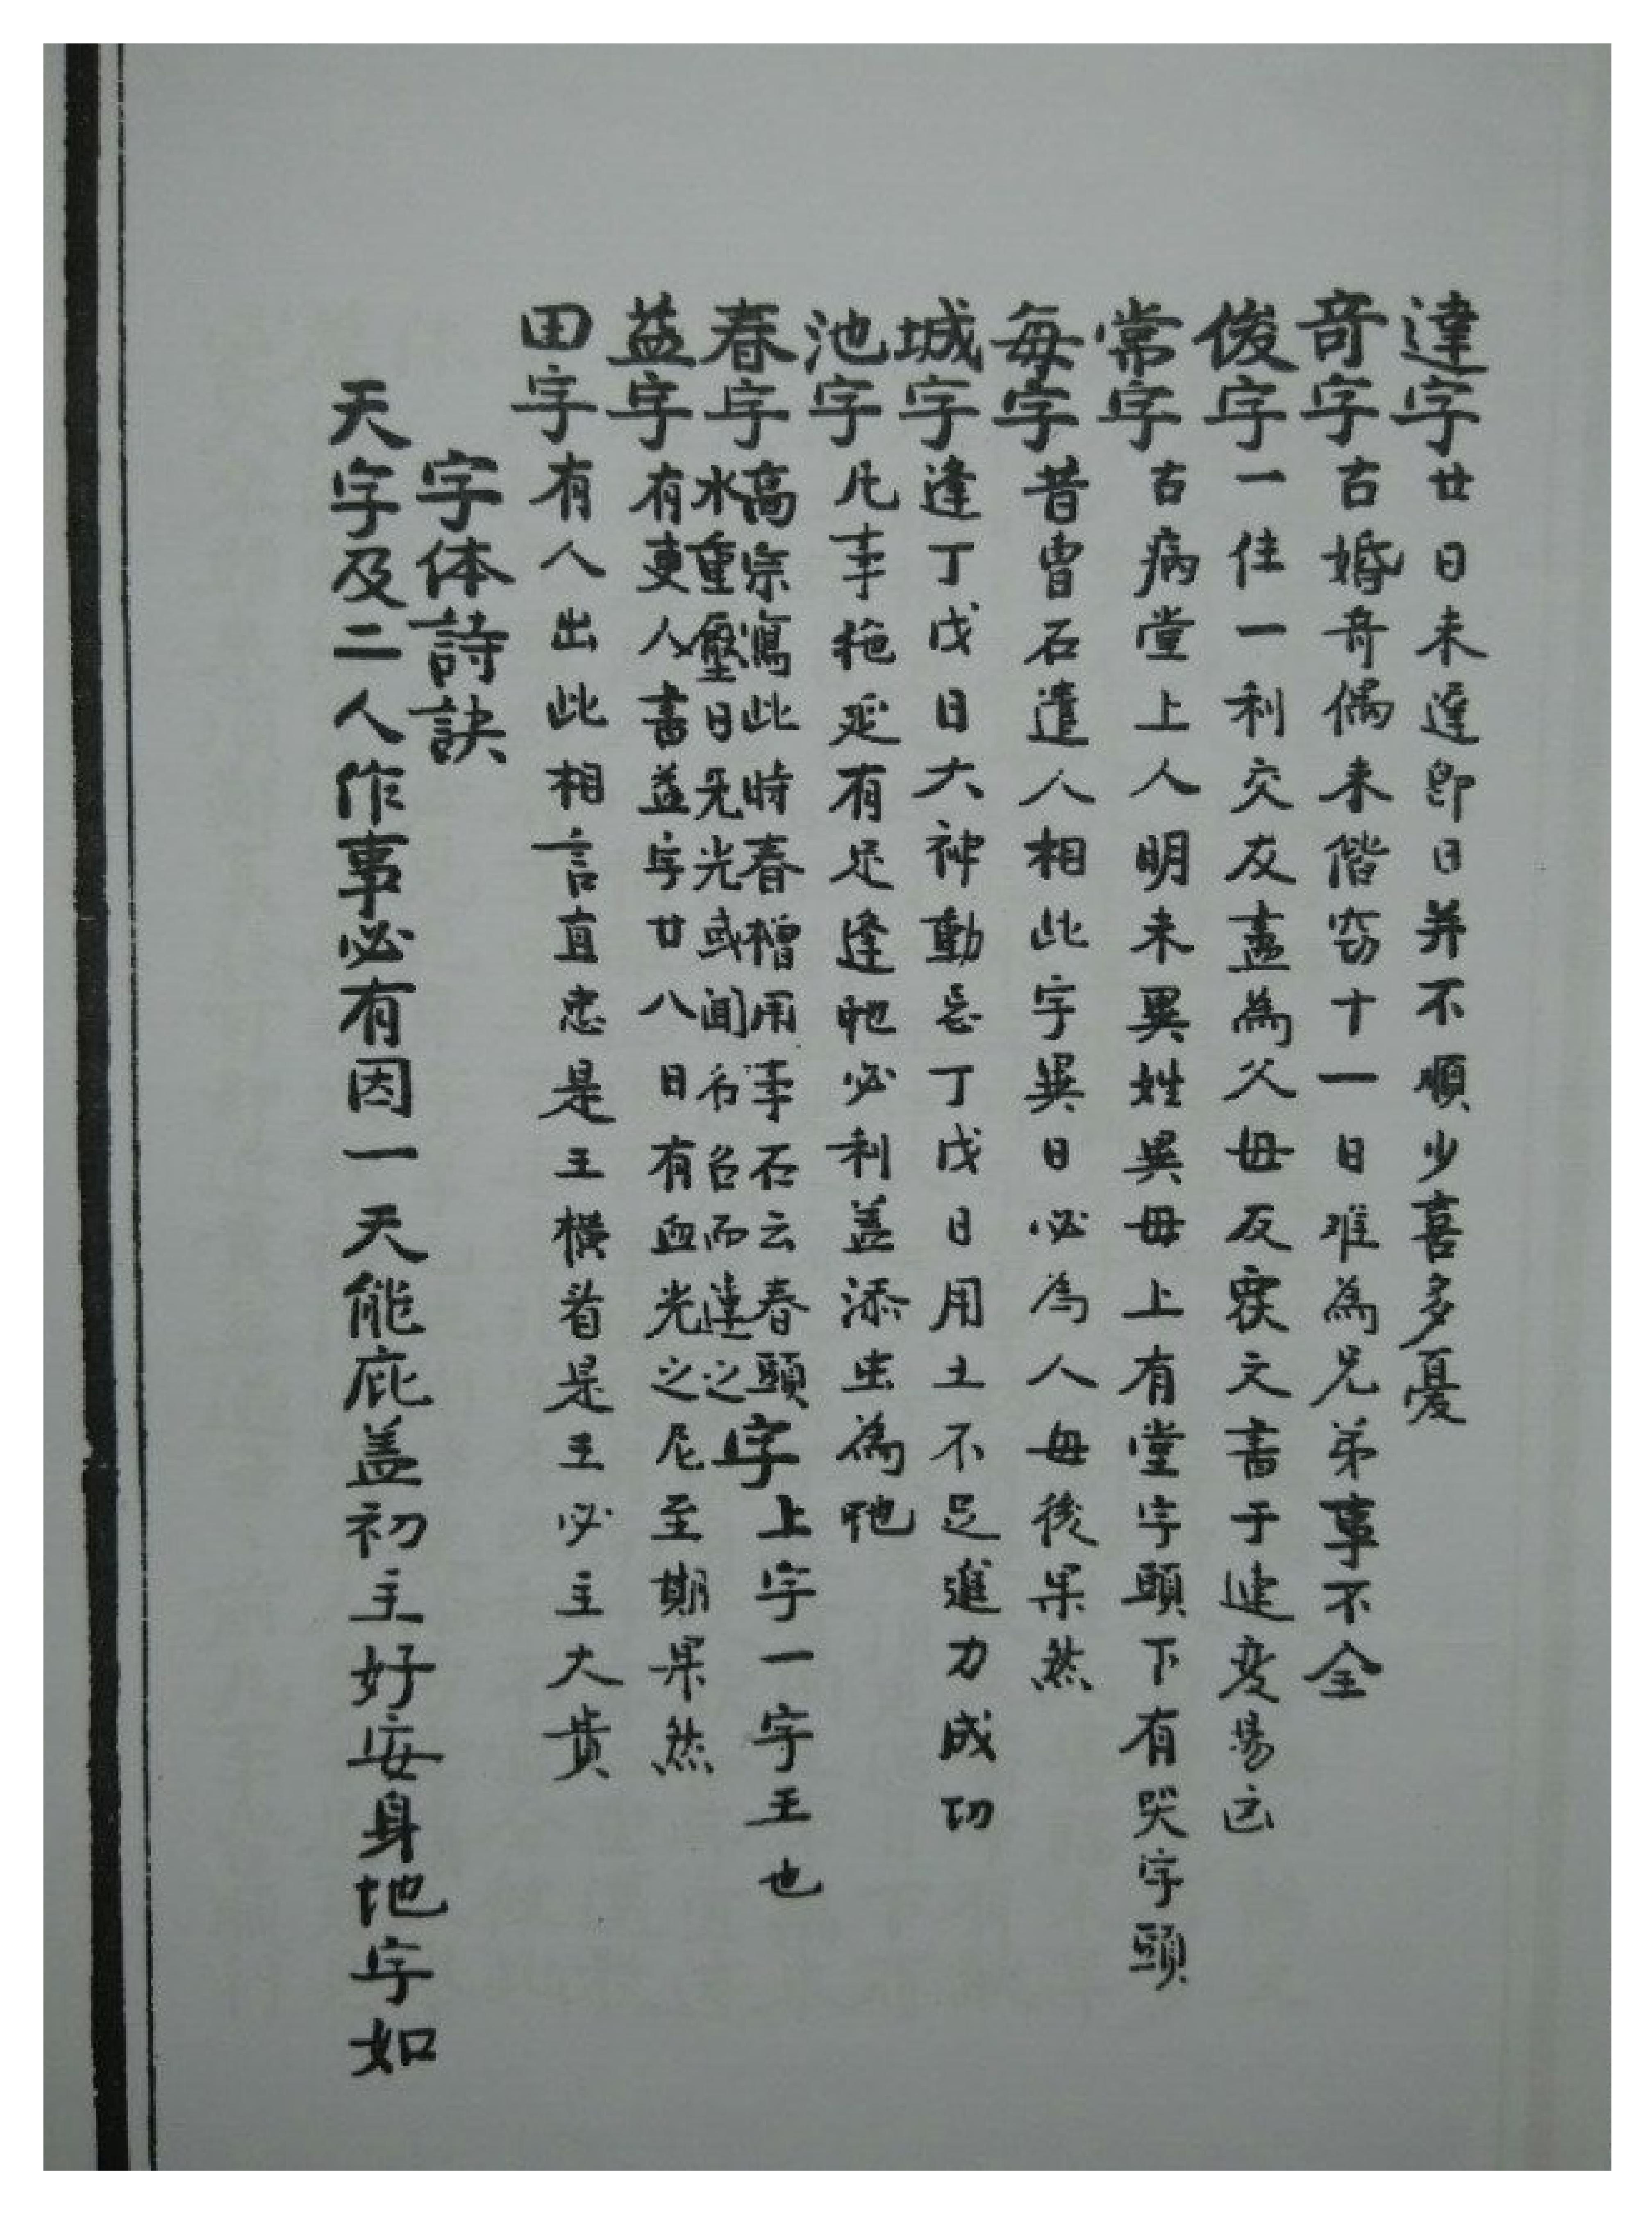 達字廿日未達即日并不順少喜多憂
奇字古婚奇偶未偕窃十一日难為兄弟事不全
俊字一住一利交友盡為父母反突文書于建变易迄
常字古病堂上人明未異姓異母上有堂字頭下有哭字頭
每字昔曾石遣人相此字異日必為人母後果然
城字逢丁戊日大神動忌丁戊日用土不足進力成功
池字凡事拖延有足逢虵必利盖添虫為虵
春字高宗寫此時春檜用事石云春頭字上字一字王也
水重壓日无光或闻而召而達之
益字有吏人書益字廿八日有血光之厄至期果然
田字有人出此相言直忠是王橫看是王必主大贵
字体詩訣
天字及二人作事必有因一天能庇盖初主好安身地字如